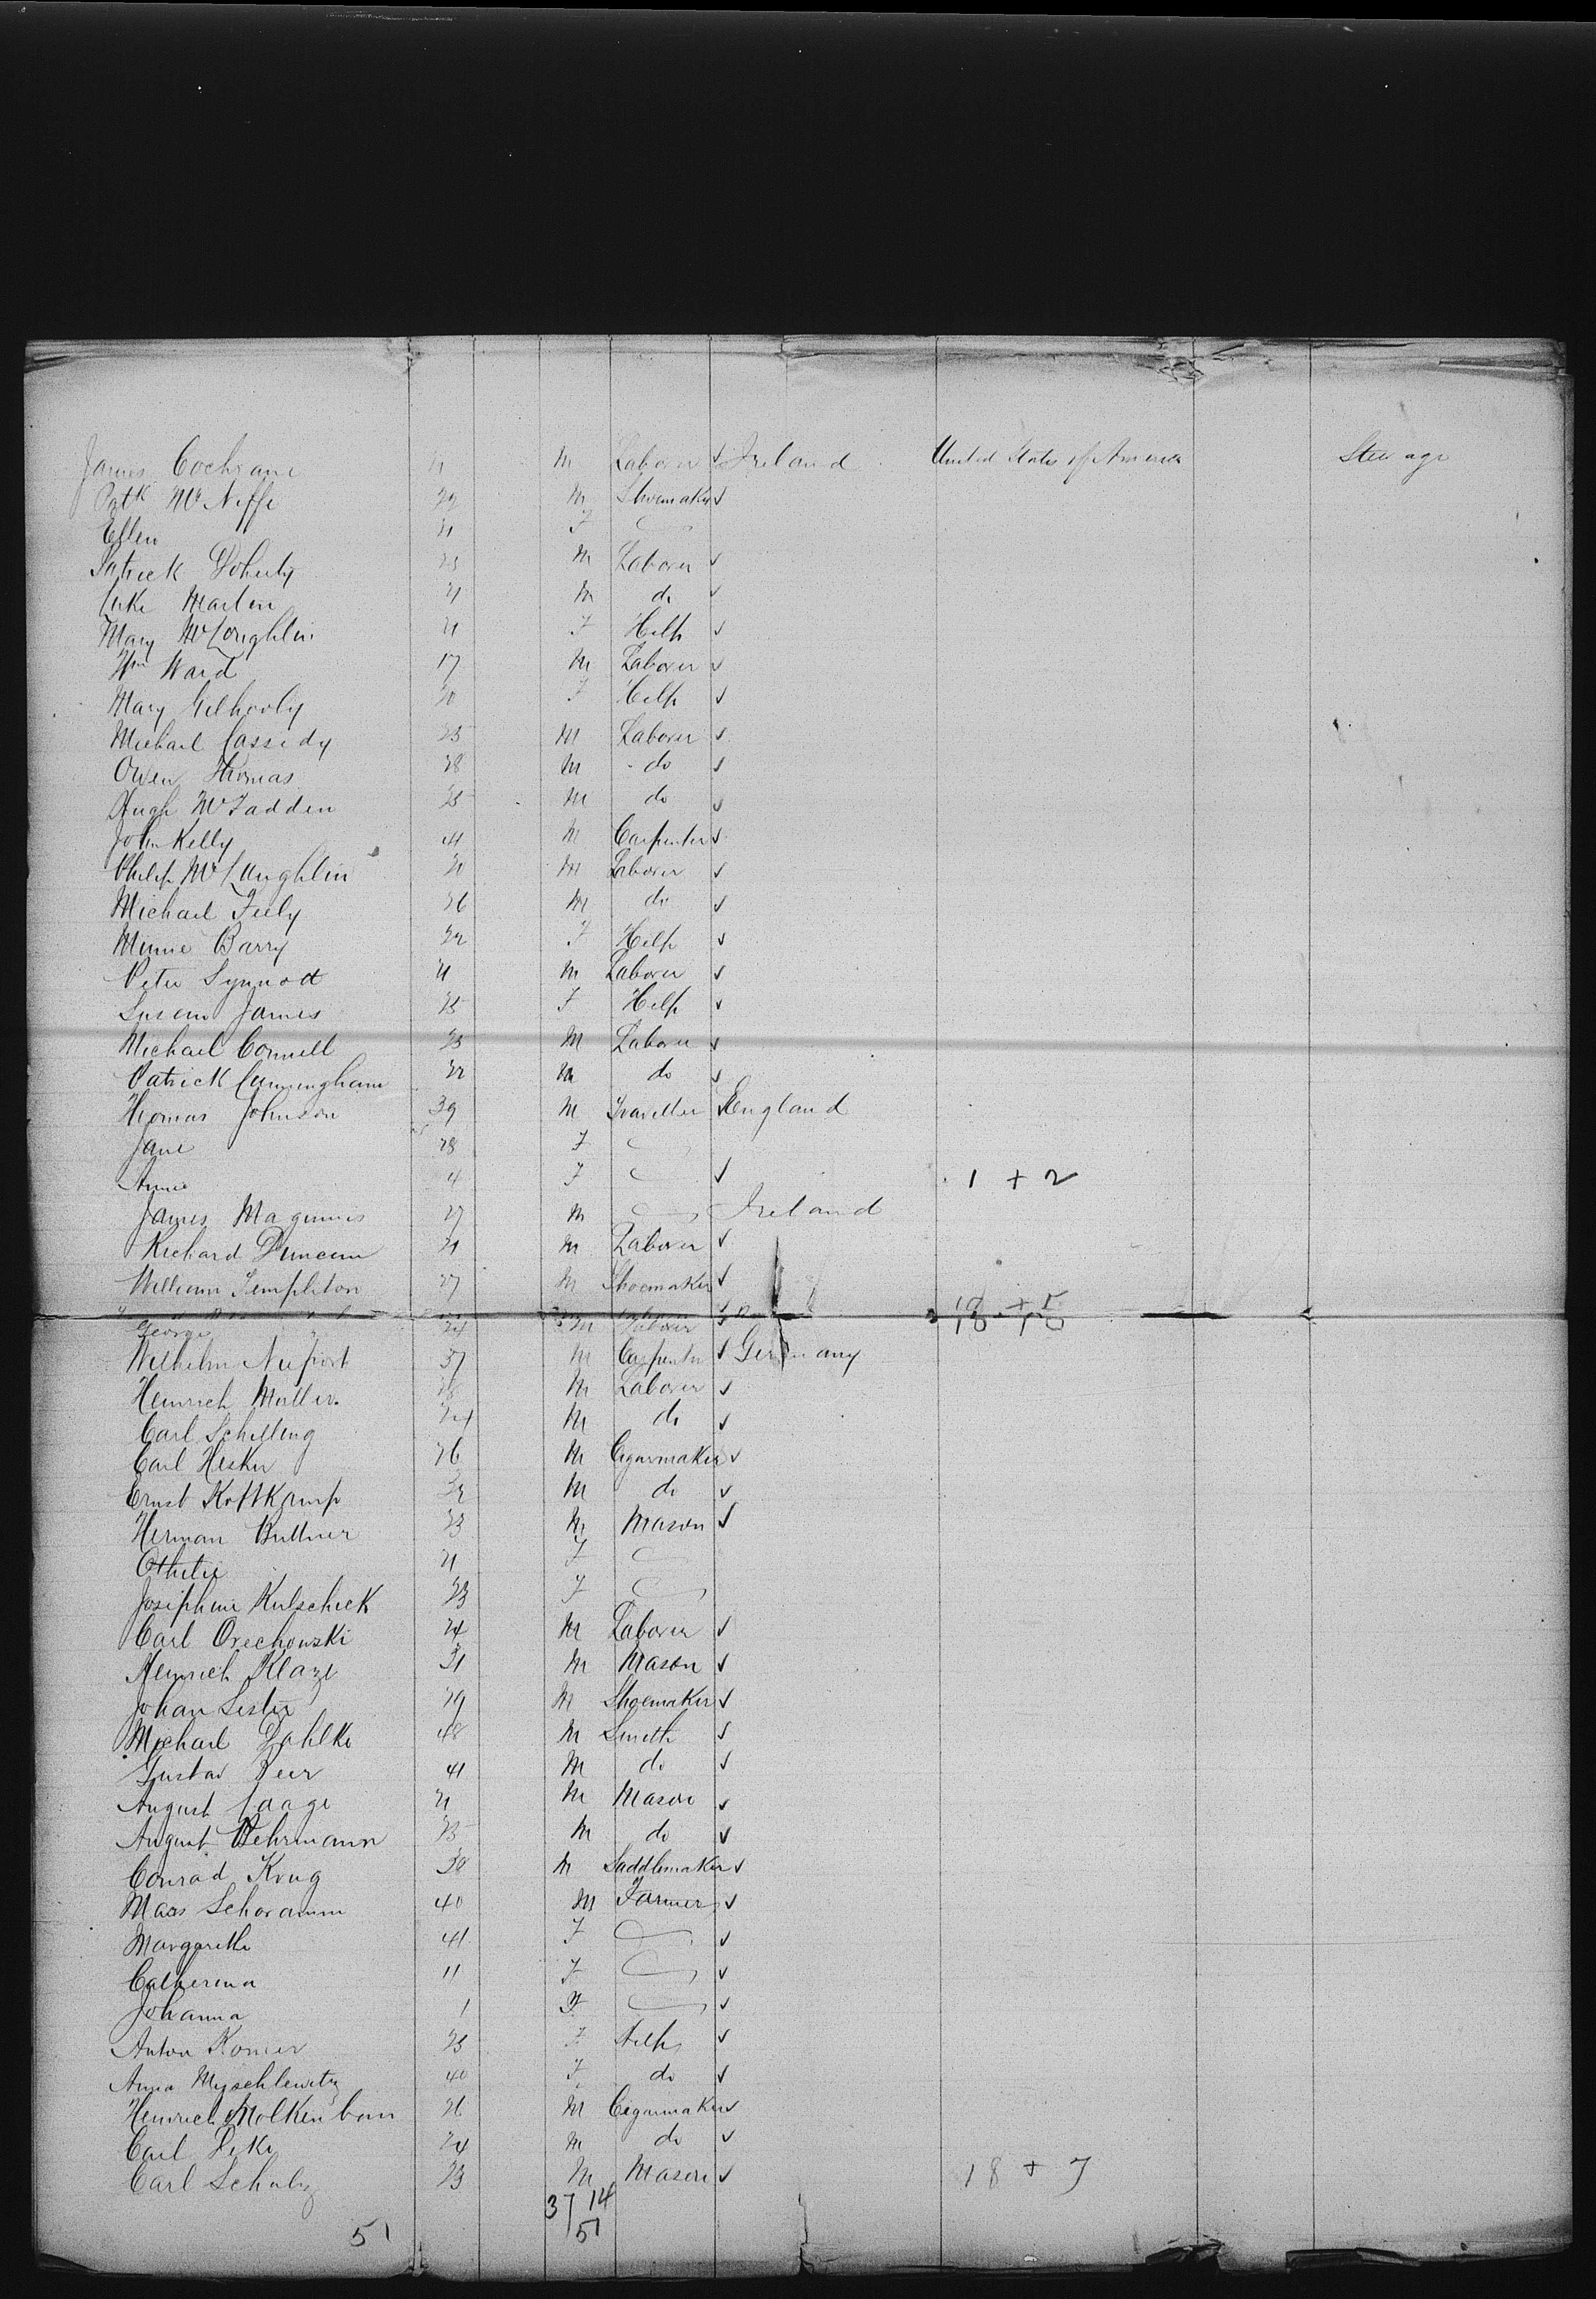 James Cochrane 21 M Laborer Ireland United States of America Steerage
Patk McNiffe 22 M Shoemaker
Ellen 21 F
Patrick Doherty 23 M Laborer
Luke Martin 21 M do
Mary McLoughlin 21 F Help
Wm Ward 17 M Laborer
Mary Gilhooly 20 F Help
Michael Cassidy 25 M Laborer
Owen Thomas 28 M do
Hugh McFadden 25 M do
John Kelly 41 M Carpenter
Philip McLaughlin 21 M Laborer
Michael Feely 26 M do
Minnie Barry 22 F Help
Peter Synnott 21 M Laborer
Susan James 25 F Help
Michael Connell 23 M Laborer
Patrick Cunningham 22 M do
Thomas Johnson 39 M Traveller England
Jane 28 F
Annie 4 F 1 + 2
James Maginnis 27 M Ireland
Richard Duncan 21 M Laborer
William Templeton 27 M Shoemaker
George 24 M Laborer
Wilhelm Nieport 37 M Carpenter Germany
Heinrich Muller M Laborer
Carl Schilling 24 M do
Carl Hesker 26 M Cigarmaker
Ernst Kottkamp 22 M do
Herman Buttner 23 M Mason
Othilie 21 F
Josephine Kulschick 23 F
Carl Orechowski 24 M Laborer
Heinrich Klaze 31 M Mason
Johan Lester 29 M Shoemaker
Michael Dahlke 48 M Smith
Gustav 41 M do
August Laage 21 M Mason
August Wehrmann 25 M do
Conrad Krug 30 M Saddlemaker
Mass Schoramm 40 M Farmer
Margarethe 41 F
Catherina 11 F
Johanna 1 F
Anton Romer 23 F Help
Anna Myschlewitz 40 F do
Heinrich Molkenbom 26 M Cigarmaker
Carl 24 M do
Carl Schulz 23 M Mason 18 + 7
37 14
51 51